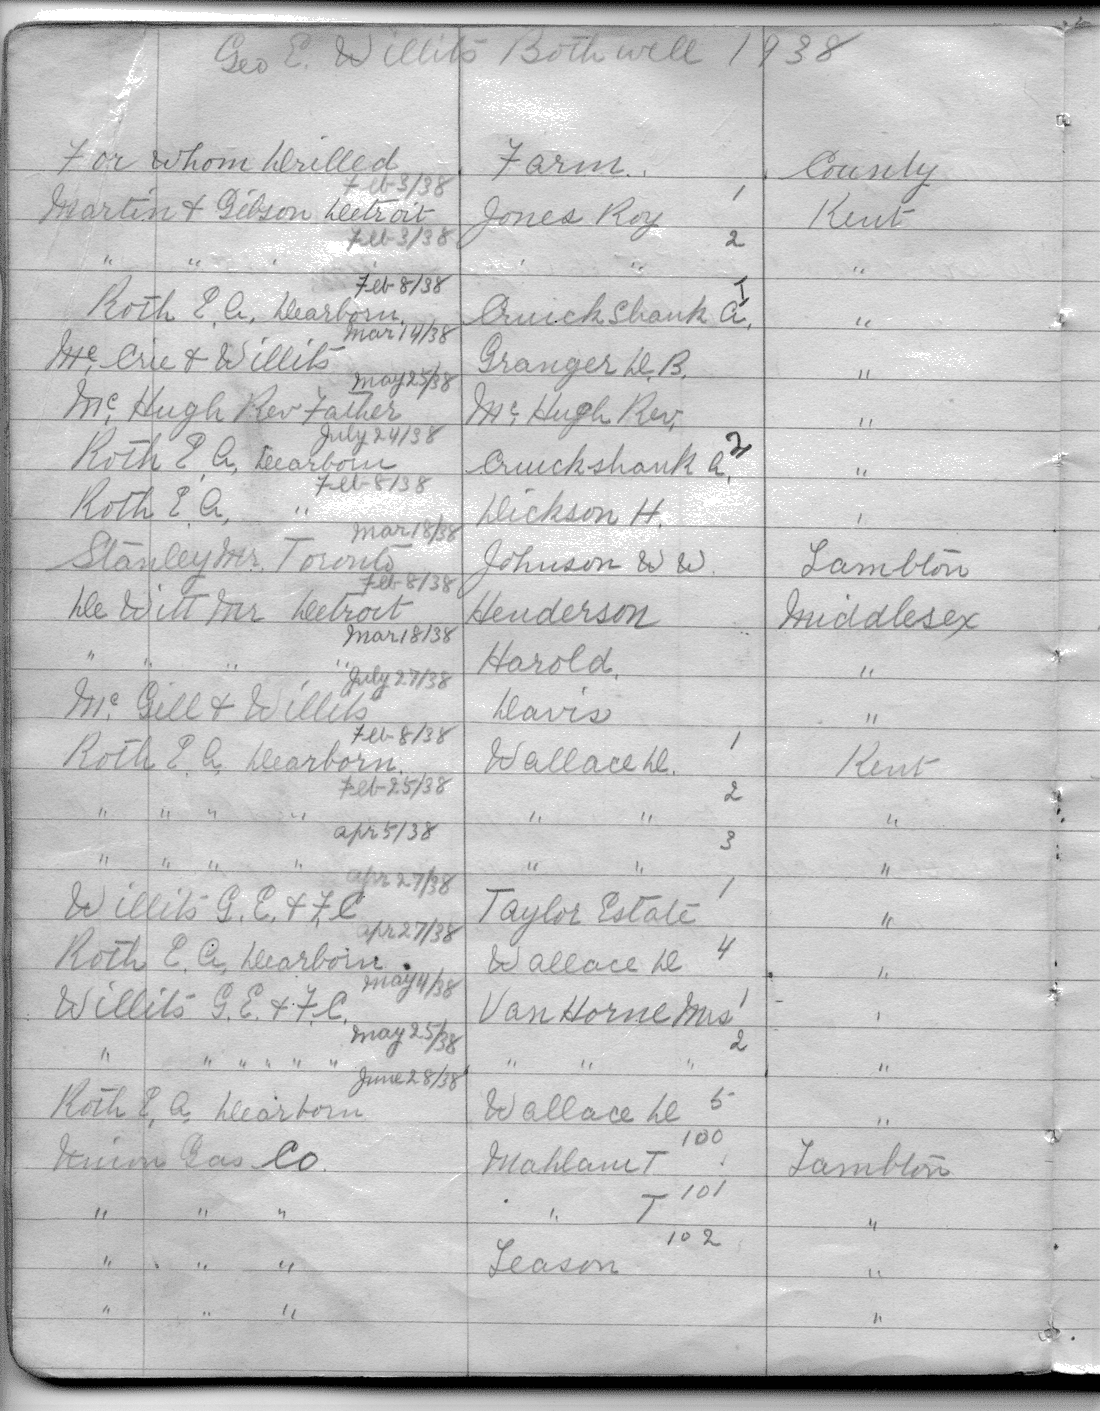 Geo E. Willits Bothwell 1938
For whom Drilled Farm. County
Feb 3/38
Martin & Gibson Detroit Jones Roy 1 Kent
Feb 3/38
" " " " " " 2 "
Feb 8/38
Roth E. A. Dearborn. Cruickshank A. I "
Mar 14/38
Mc. Crie & Willits Granger D. B. "
May 25/38
Mc. Hugh Rev Father Mc. Hugh Rev. "
July 24/38
Roth E. A. Dearborn Cruickshank A. 2 "
Feb 8/38
Roth E. A. " Dickson H. "
Mar 18/38
Stanley Mr. Toronto Johnson W W. Lambton
Feb 8/38
De Witt Mr Detroit Henderson Middlesex
Mar 18/38
" " " " Harold. "
July 27/38
Mc. Gill & Willits Davis "
Feb 8/38
Roth E. A. Dearborn. Wallace D. 1 Kent
Feb 25/38
" " " " " " 2 "
Apr 5/38
" " " " " " 3 "
Apr 27/38
Willits G. E. & F. C Taylor Estate 1 "
Apr 27/38
Roth E. A. Dearborn. Wallace D 4 "
May 4/38
Willits G. E. & F. C. Van Horne Mrs 1 "
May 25/38
" " " " " " " " " 2 "
June 28/38
Roth E. A. Dearborn Wallace D 5 "
Union Gas Co. T 100 Lambton
" " " " T 101 "
" " " Leason 102 "
" " " "